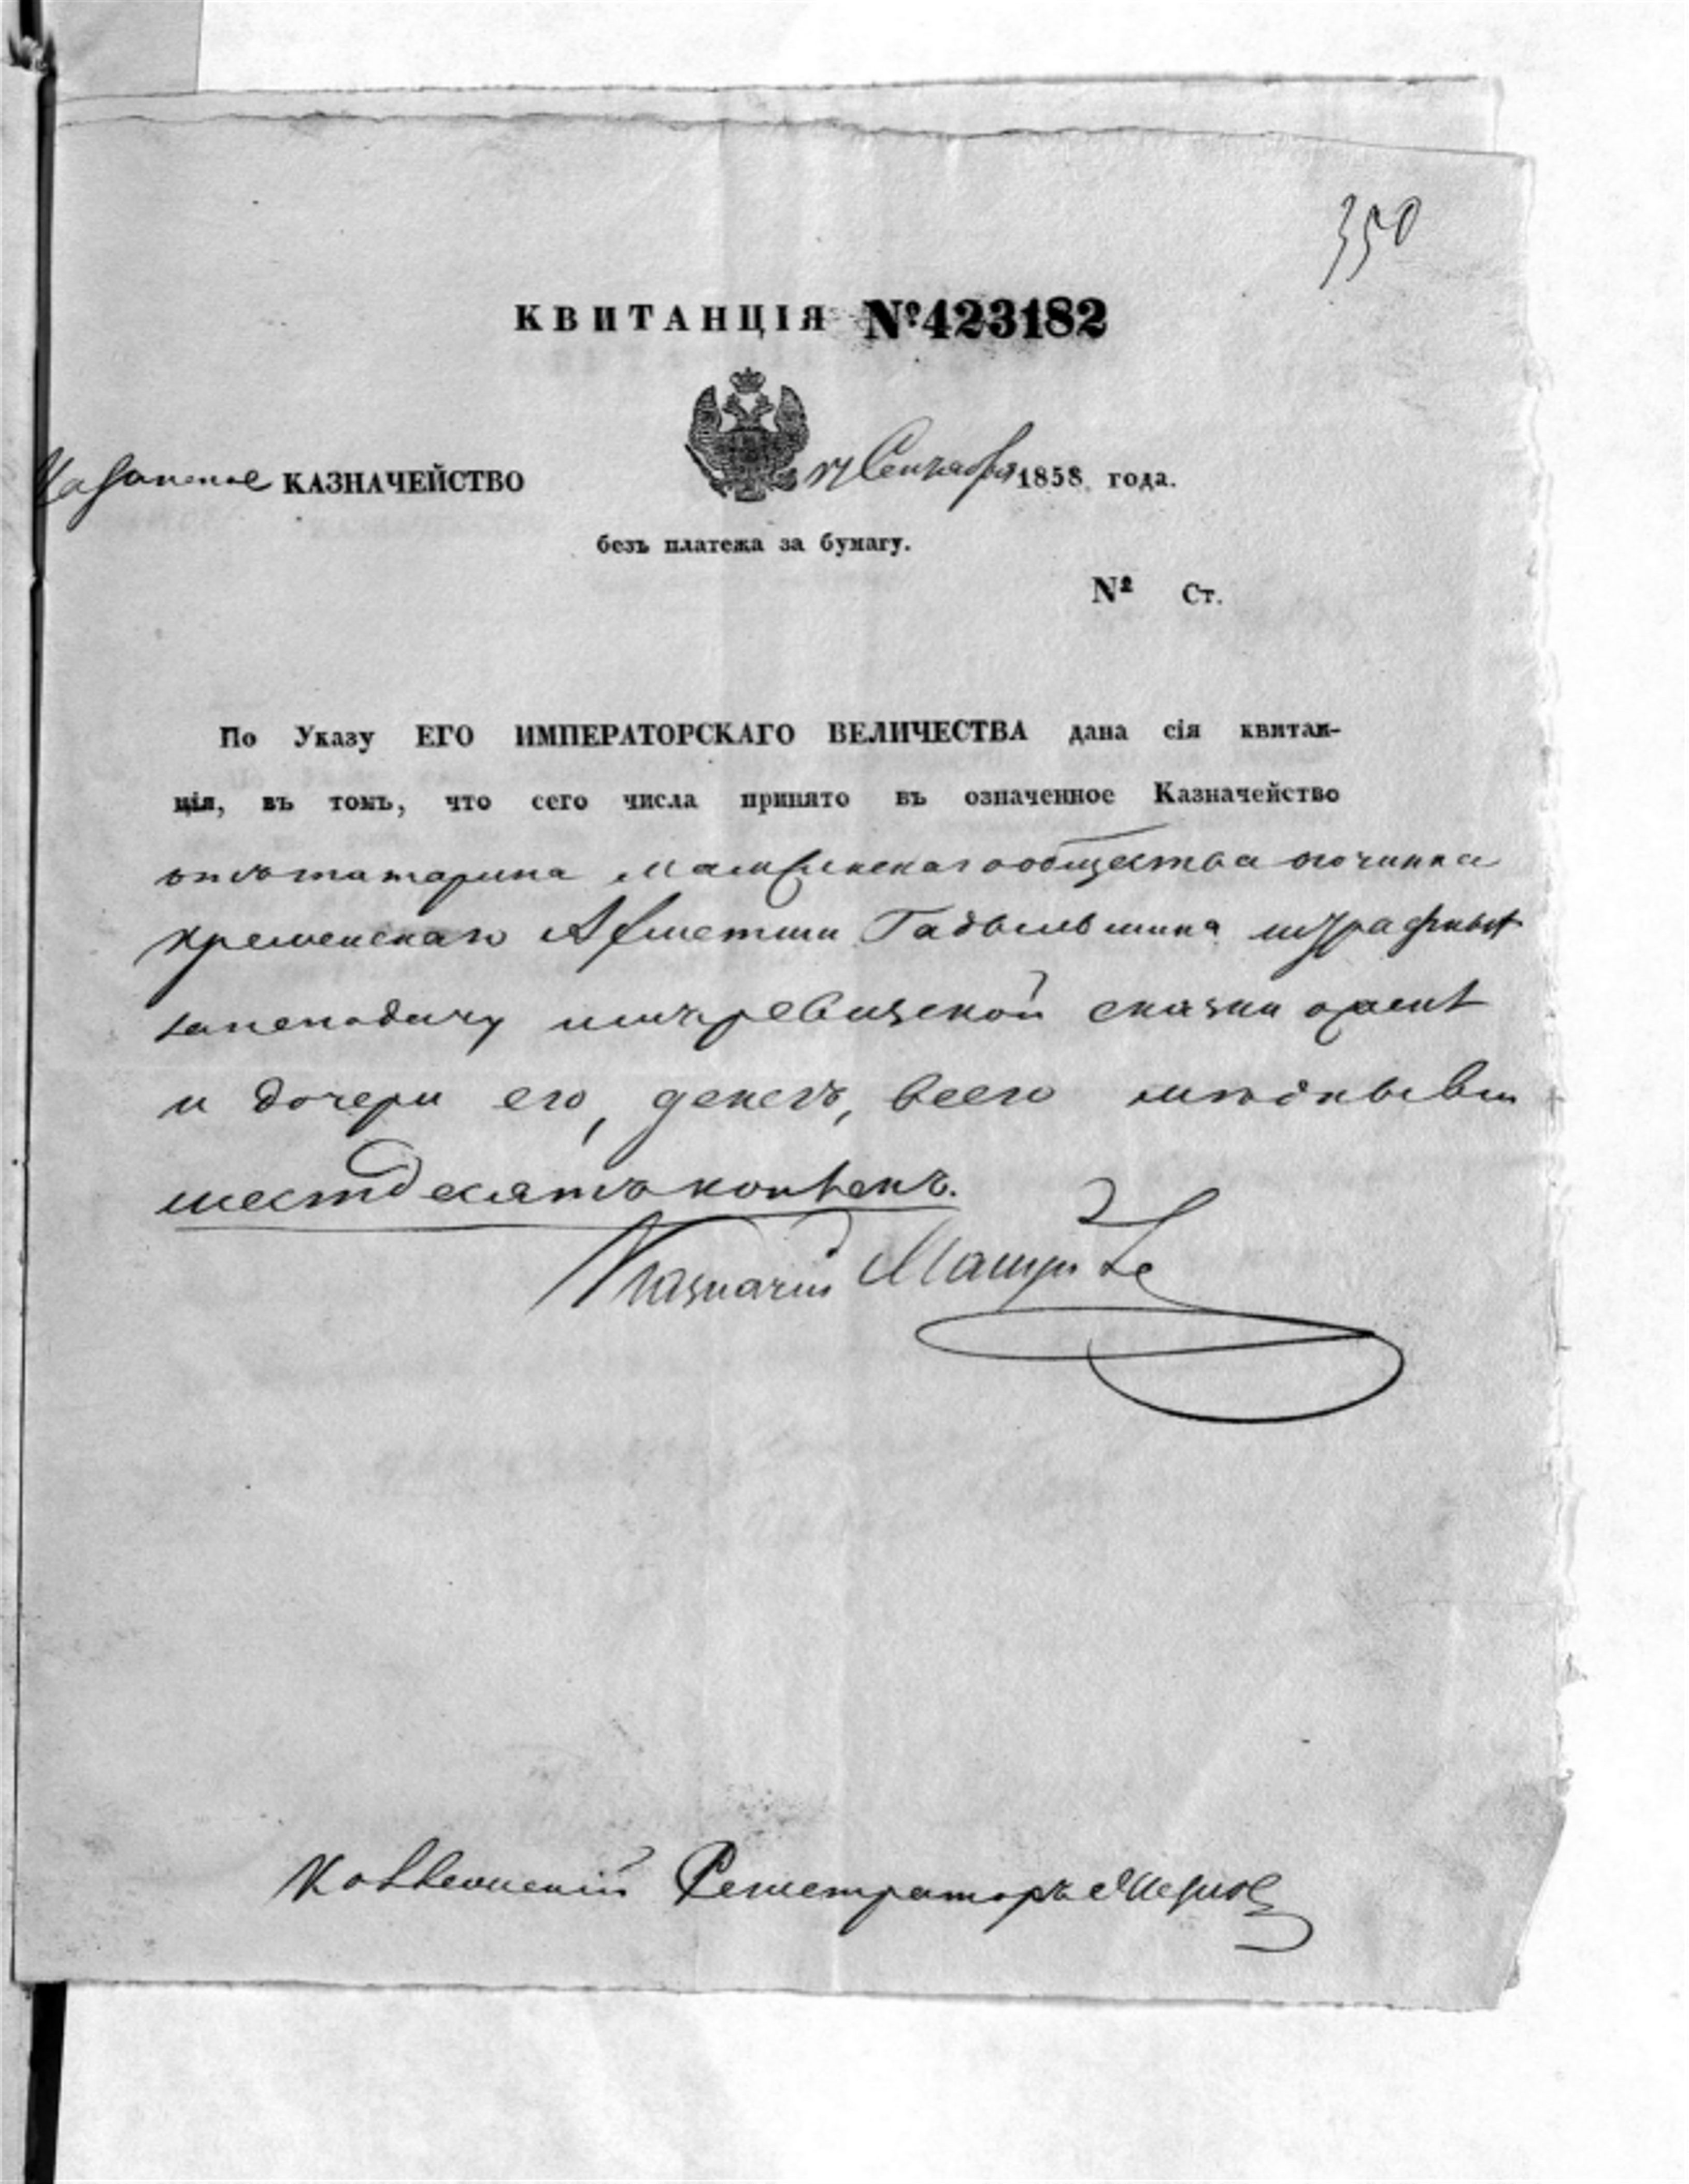 350
КВИТАНЦІЯ №423182
Казанское КАЗНАЧЕЙСТВО 17 Сентября 1858 года.
безъ платежа за бумагу.
№ Ст.
По Указу ЕГО ИМПЕРАТОРСКАГО ВЕЛИЧЕСТВА дана сія квитан-
ція, въ томъ, что сего числа принято въ означенное Казначейство
отъ татарина общества починка
Кременскаго Ахметши штрафныя
занеподачу имъ ревизской сказки о женѣ
и дочери его, денегъ, всего
шестдесятъ копѣекъ.
Казначей
Коллежскій Регистраторъ